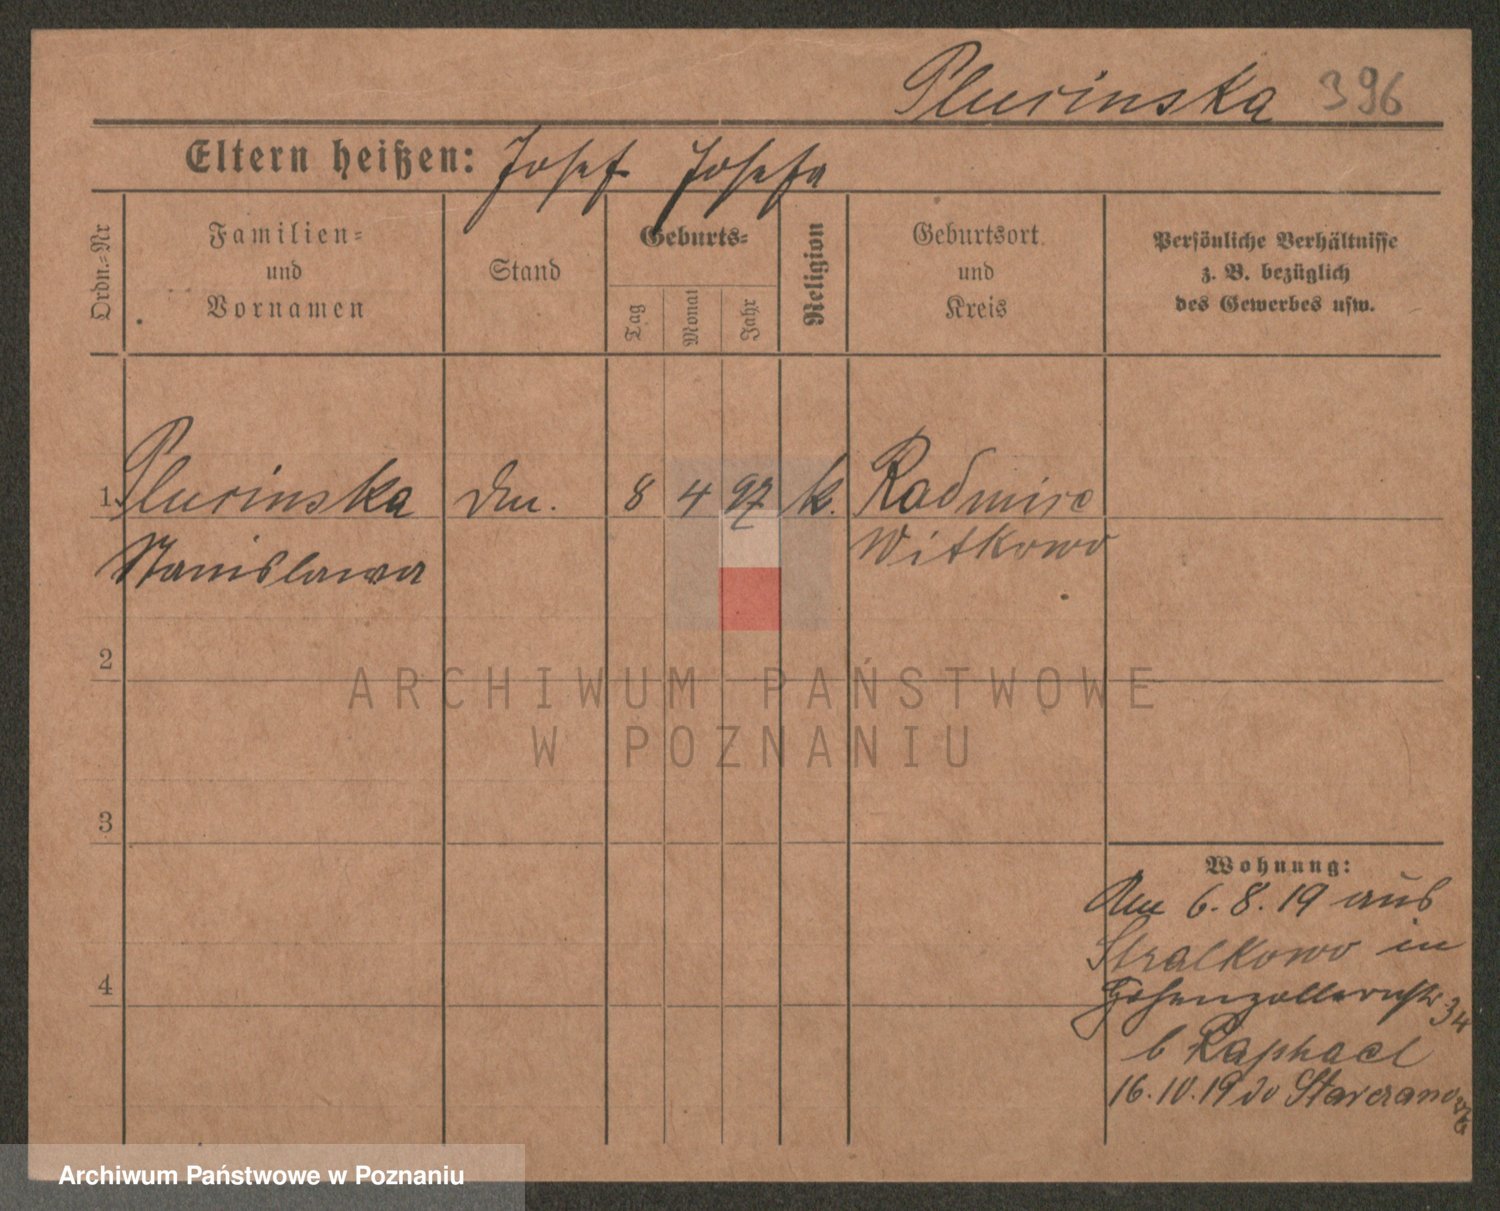 Plucinska 396
Eltern heißen: Josef Josefa
Ordn.-Nr
Familien-
und
Vornamen
Stand
Geburts-
Tag
Monat
Jahr
Religion
Geburtsort
und
Kreis
Persönliche Verhältnisse
z. B. bezüglich
des Gewerbes usw.
1 Plucinska 8 4 97 k. Radmirc
Stanislawa Witkowo
2
3
4
Wohnung:
Am 6.8.19 aus
Stralkowo in
Hohenzollernstr 34
b Raphael
16.IV.19 do
ARCHIWUM PAŃSTWOWE
W POZNANIU
Archiwum Państwowe w Poznaniu